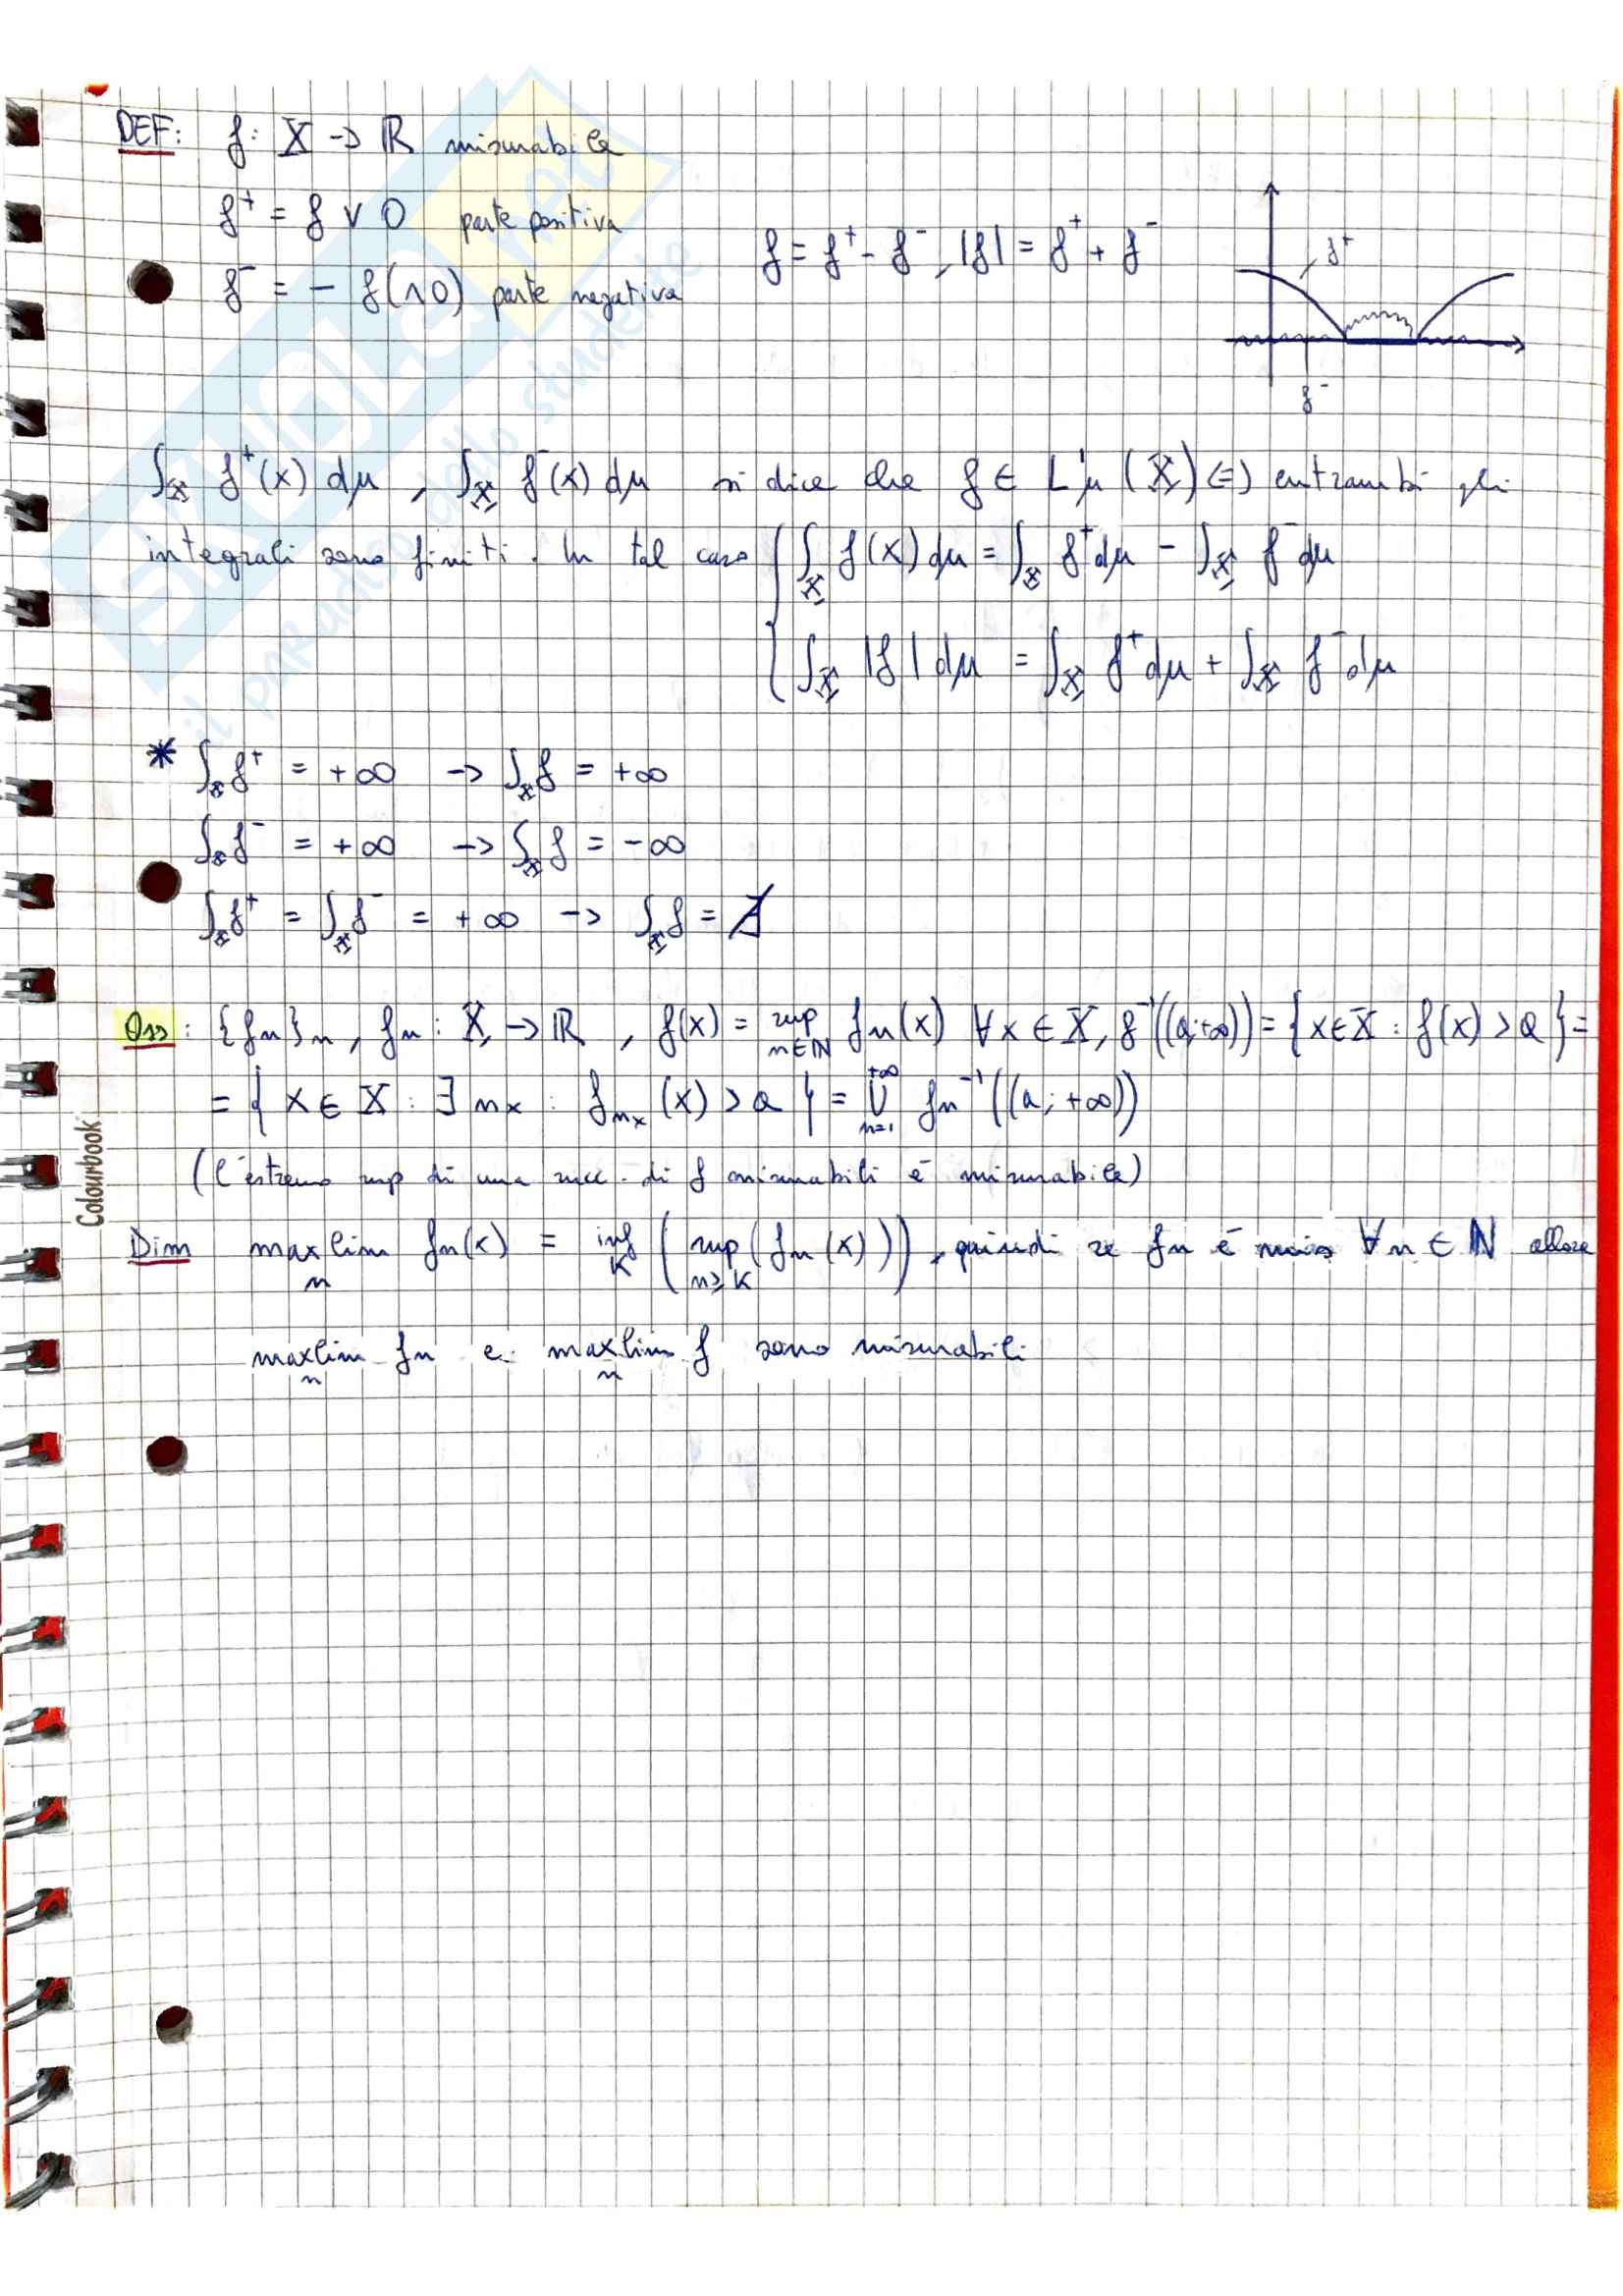 DEF: f: X -> ℝ misurabile
f⁺ = f ∨ 0 parte positiva
f⁻ = - f(∧0) parte negativa
f = f⁺ - f⁻, |f| = f⁺ + f⁻
f⁺
f⁻
∫_X f⁺(x) dμ, ∫_X f⁻(x) dμ si dice che f ∈ L¹μ (X) (=) entrambi gli
integrali sono finiti. In tal caso { ∫_X f(x) dμ = ∫_X f⁺dμ - ∫_X f⁻dμ
∫_X |f| dμ = ∫_X f⁺dμ + ∫_X f⁻dμ
* ∫_X f⁺ = +∞ -> ∫_X f = +∞
∫_X f⁻ = +∞ -> ∫_X f = -∞
∫_X f⁺ = ∫_X f⁻ = +∞ -> ∫_X f = ∄
Oss: {fn}n, fn: X -> ℝ, f(x) = sup_{n∈ℕ} fn(x) ∀x ∈ X, f⁻¹((a;+∞)) = {x∈X : f(x) > a} =
= {x ∈ X : ∃ nx : f_{nx}(x) > a} = ⋃_{n=1}^{+∞} fn⁻¹((a; +∞))
(l'estremo sup di una succ. di f misurabili è misurabile)
Dim maxlim_n fn(x) = inf_K (sup_{n≥K} (fn(x))), quindi se fn è mis ∀n ∈ ℕ allora
maxlim_n fn e maxlim_n f sono misurabili
Colourbook
SKUOLA.net
il paradiso dello studente